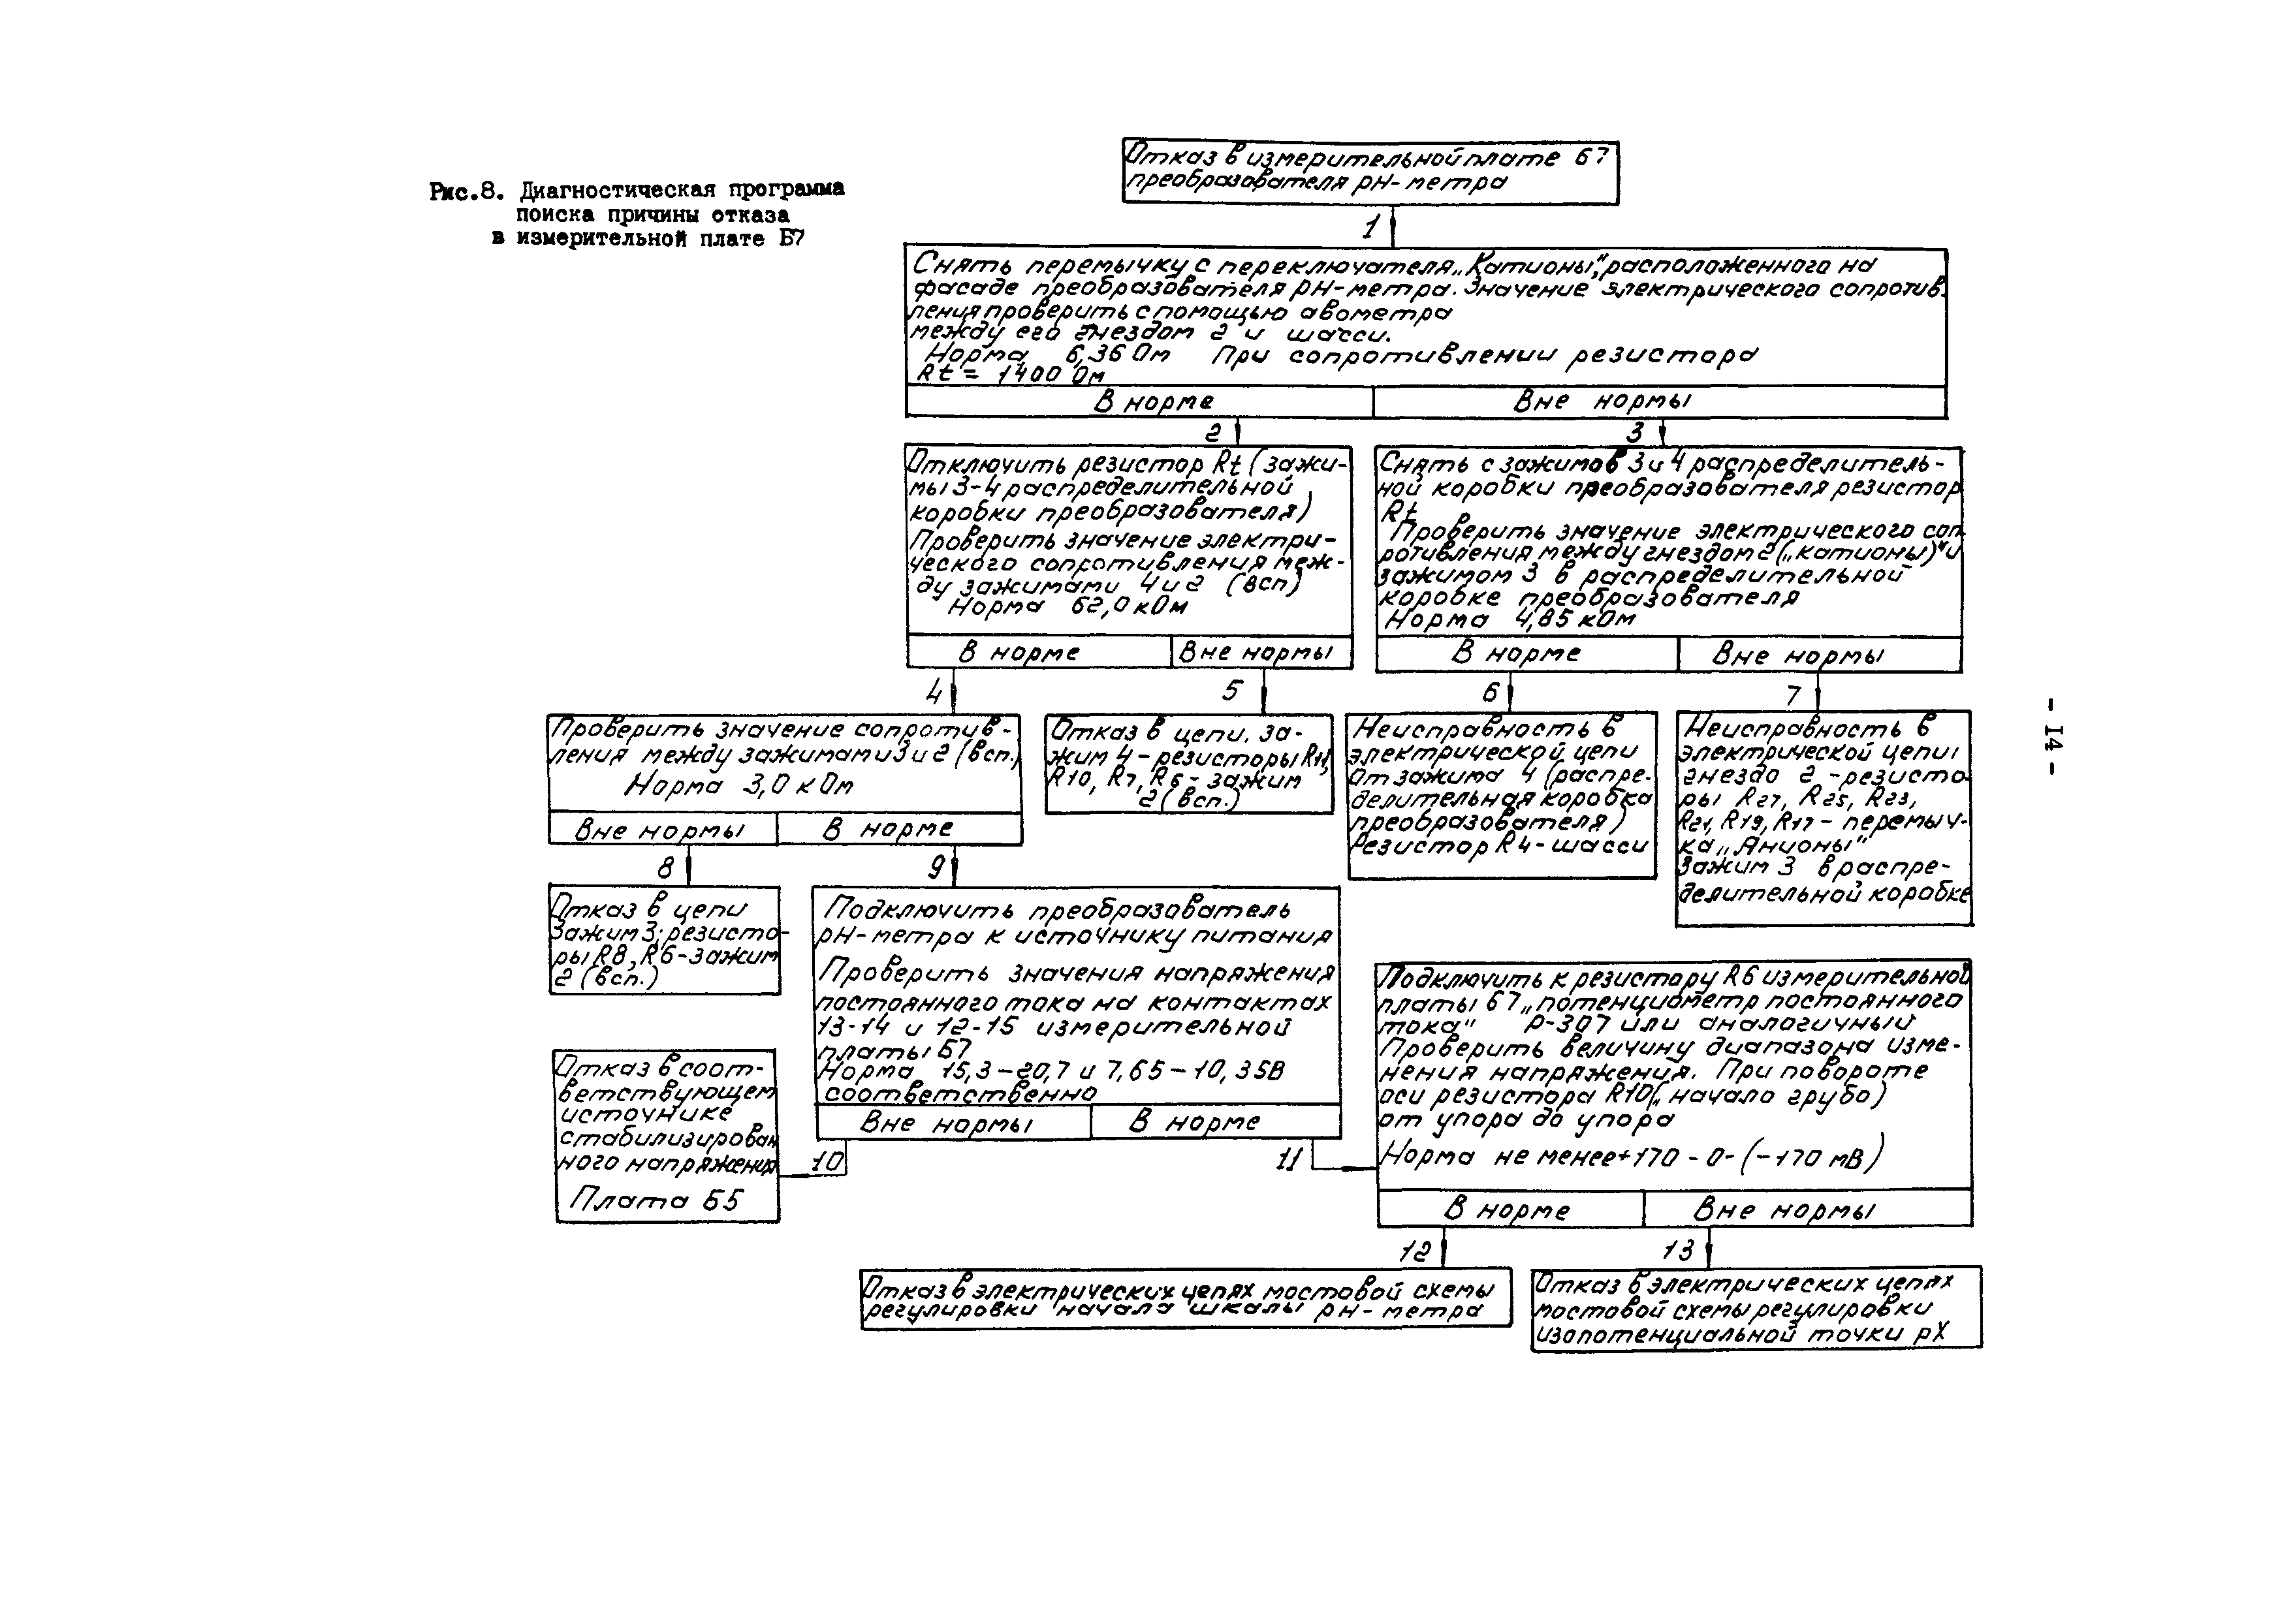 Рис.8. Диагностическая программа
поиска причины отказа
в измерительной плате Б7
Отказ в измерительной плате Б7
преобразователя рН-метра
1
Снять перемычку с переключателя „Катионы", расположенного на
фасаде преобразователя рН-метра. Значение электрического сопротив-
ления проверить с помощью авометра
между его гнездом 2 и шасси.
Норма 6,36 Ом При сопротивлении резистора
Rt = 1400 Ом
В норме Вне нормы
2 3
Отключить резистор Rt (зажи-
мы 3-4 распределительной
коробки преобразователя)
Проверить значение электри-
ческого сопротивления меж-
ду зажимами 4 и 2 (всп)
Норма 62,0 кОм
В норме Вне нормы
Снять с зажимов 3 и 4 распределитель-
ной коробки преобразователя резистор
Rt
Проверить значение электрического соп-
ротивления между гнездом 2 („катионы)" и
зажимом 3 в распределительной
коробке преобразователя
Норма 4,85 кОм
В норме Вне нормы
4 5 6 7
Проверить значение сопротив-
ления между зажимами 3 и 2 (всп.)
Норма 3,0 кОм
Вне нормы В норме
Отказ в цепи. за-
жим 4 - резисторы R11,
R10, R7, R6 - зажим
2 (всп.)
Неисправность в
электрической цепи
от зажима 4 (распре-
делительная коробка
преобразователя)
Резистор R4 - шасси
Неисправность в
электрической цепи:
гнездо 2 - резисто-
ры R27, R25, R23,
R21, R19, R17 - перемыч-
ка „Анионы"
Зажим 3 в распре-
делительной коробке
8 9
Отказ в цепи
Зажим 3; резисто-
ры R8, R6 - зажим
2 (всп.)
Подключить преобразователь
рН-метра к источнику питания
Проверить значения напряжения
постоянного тока на контактах
13-14 и 12-15 измерительной
платы Б7
Норма 15,3 - 20,7 и 7,65 - 10,35В
соответственно
Вне нормы В норме
10 11
Отказ в соот-
ветствующем
источнике
стабилизирован
ного напряжения
Плата Б5
Подключить к резистору R6 измерительной
платы Б7 „потенциометр постоянного
тока" Р-307 или аналогичный
Проверить величину диапазона изме-
нения напряжения. При повороте
оси резистора R10 („начало грубо)
от упора до упора
Норма не менее +170 - 0 - (-170 мВ)
В норме Вне нормы
12 13
Отказ в электрических цепях мостовой схемы
регулировки начала шкалы рН-метра
Отказ в электрических цепях
мостовой схемы регулировки
изопотенциальной точки рХ
- I4 -